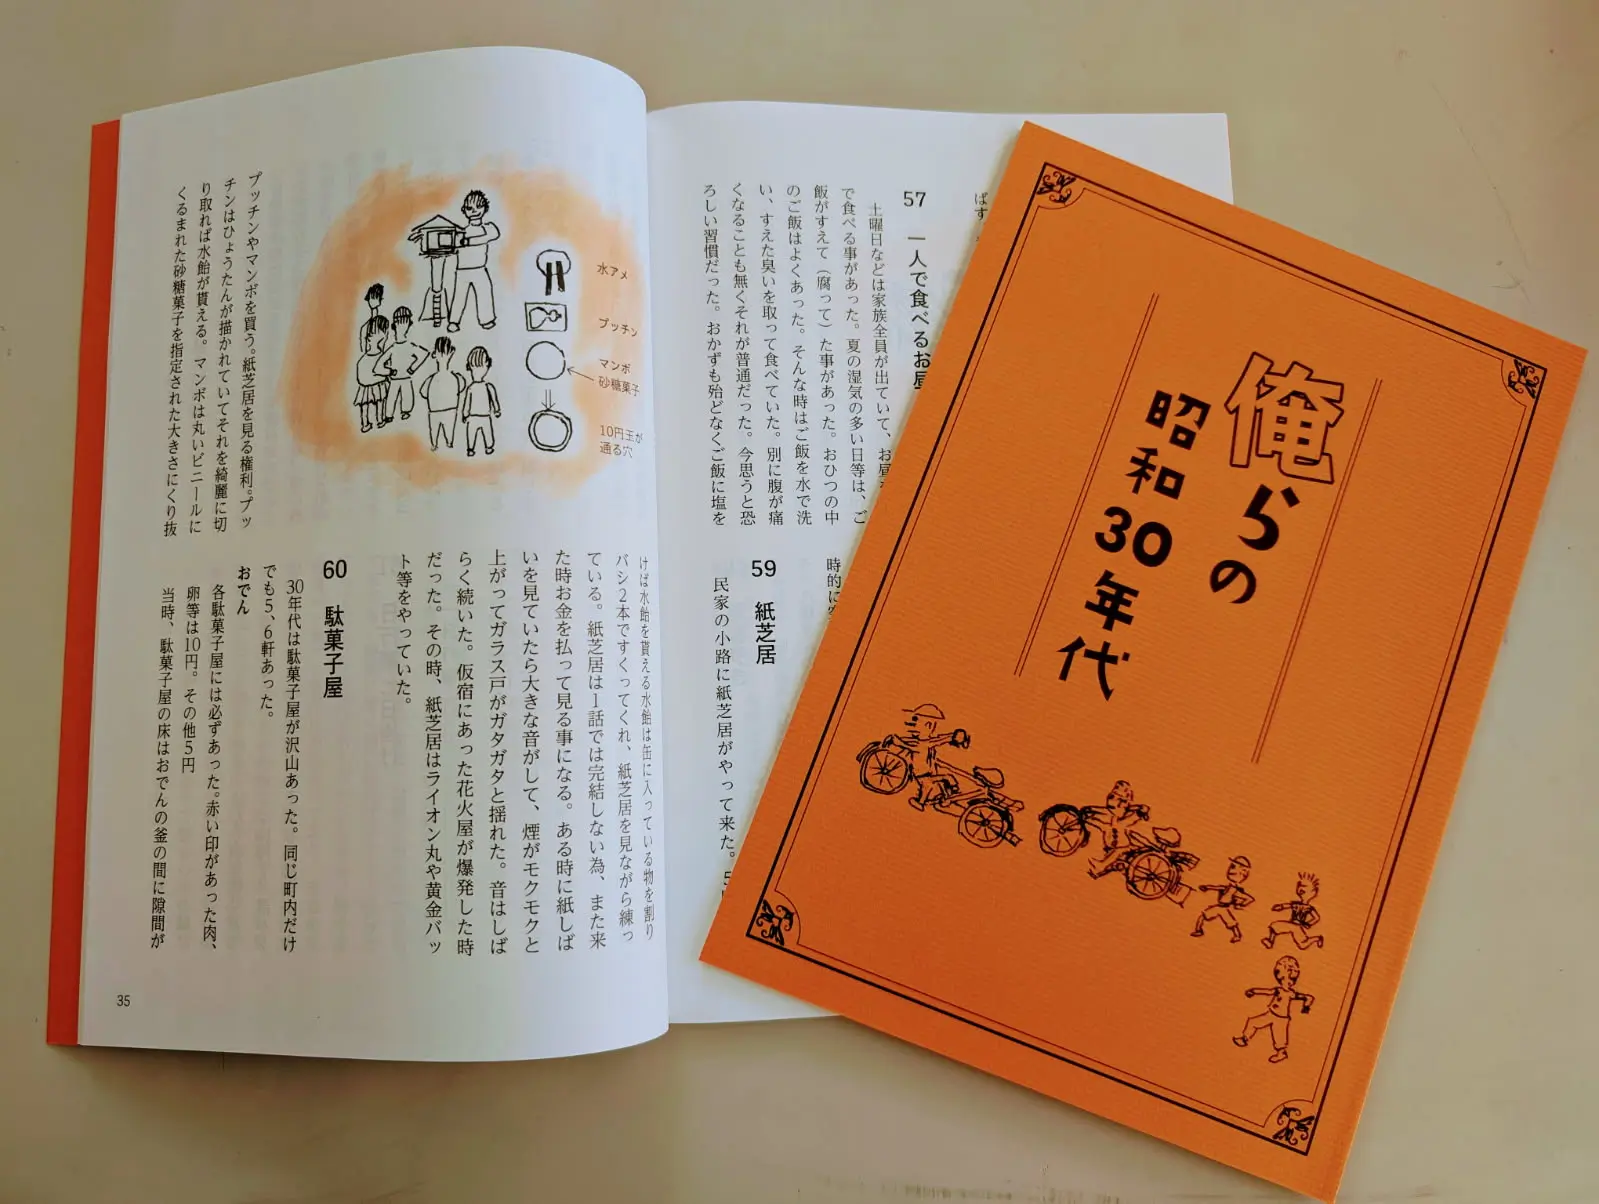 俺らの
昭和30年代
ばす
57 一人で食べるお昼
土曜日などは家族全員が出ていて、お昼
で食べる事があった。夏の湿気の多い日等は、ご
飯がすえて(腐って)た事があった。おひつの中
のご飯はよくあった。そんな時はご飯を水で洗
い、すえた臭いを取って食べていた。別に腹が痛
くなることも無くそれが普通だった。今思うと恐
ろしい習慣だった。おかずも殆どなくご飯に塩を
時的に
59 紙芝居
民家の小路に紙芝居がやって来た。5
水アメ
プッチン
マンボ
砂糖菓子
10円玉が
通る穴
プッチンやマンボを買う。紙芝居を見る権利。プッ
チンはひょうたんが描かれていてそれを綺麗に切
り取れば水飴が貰える。マンボは丸いビニールに
くるまれた砂糖菓子を指定された大きさにくり抜
けば水飴を貰える水飴は缶に入っている物を割り
バシ2本ですくってくれ、紙芝居を見ながら練っ
ている。紙芝居は1話では完結しない為、また来
た時お金を払って見る事になる。ある時に紙しば
いを見ていたら大きな音がして、煙がモクモクと
上がってガラス戸がガタガタと揺れた。音はしば
らく続いた。仮宿にあった花火屋が爆発した時
だった。その時、紙芝居はライオン丸や黄金バッ
ト等をやっていた。
60 駄菓子屋
30年代は駄菓子屋が沢山あった。同じ町内だけ
でも5、6軒あった。
おでん
各駄菓子屋には必ずあった。赤い印があった肉、
卵等は10円。その他5円
当時、駄菓子屋の床はおでんの釜の間に隙間が
35